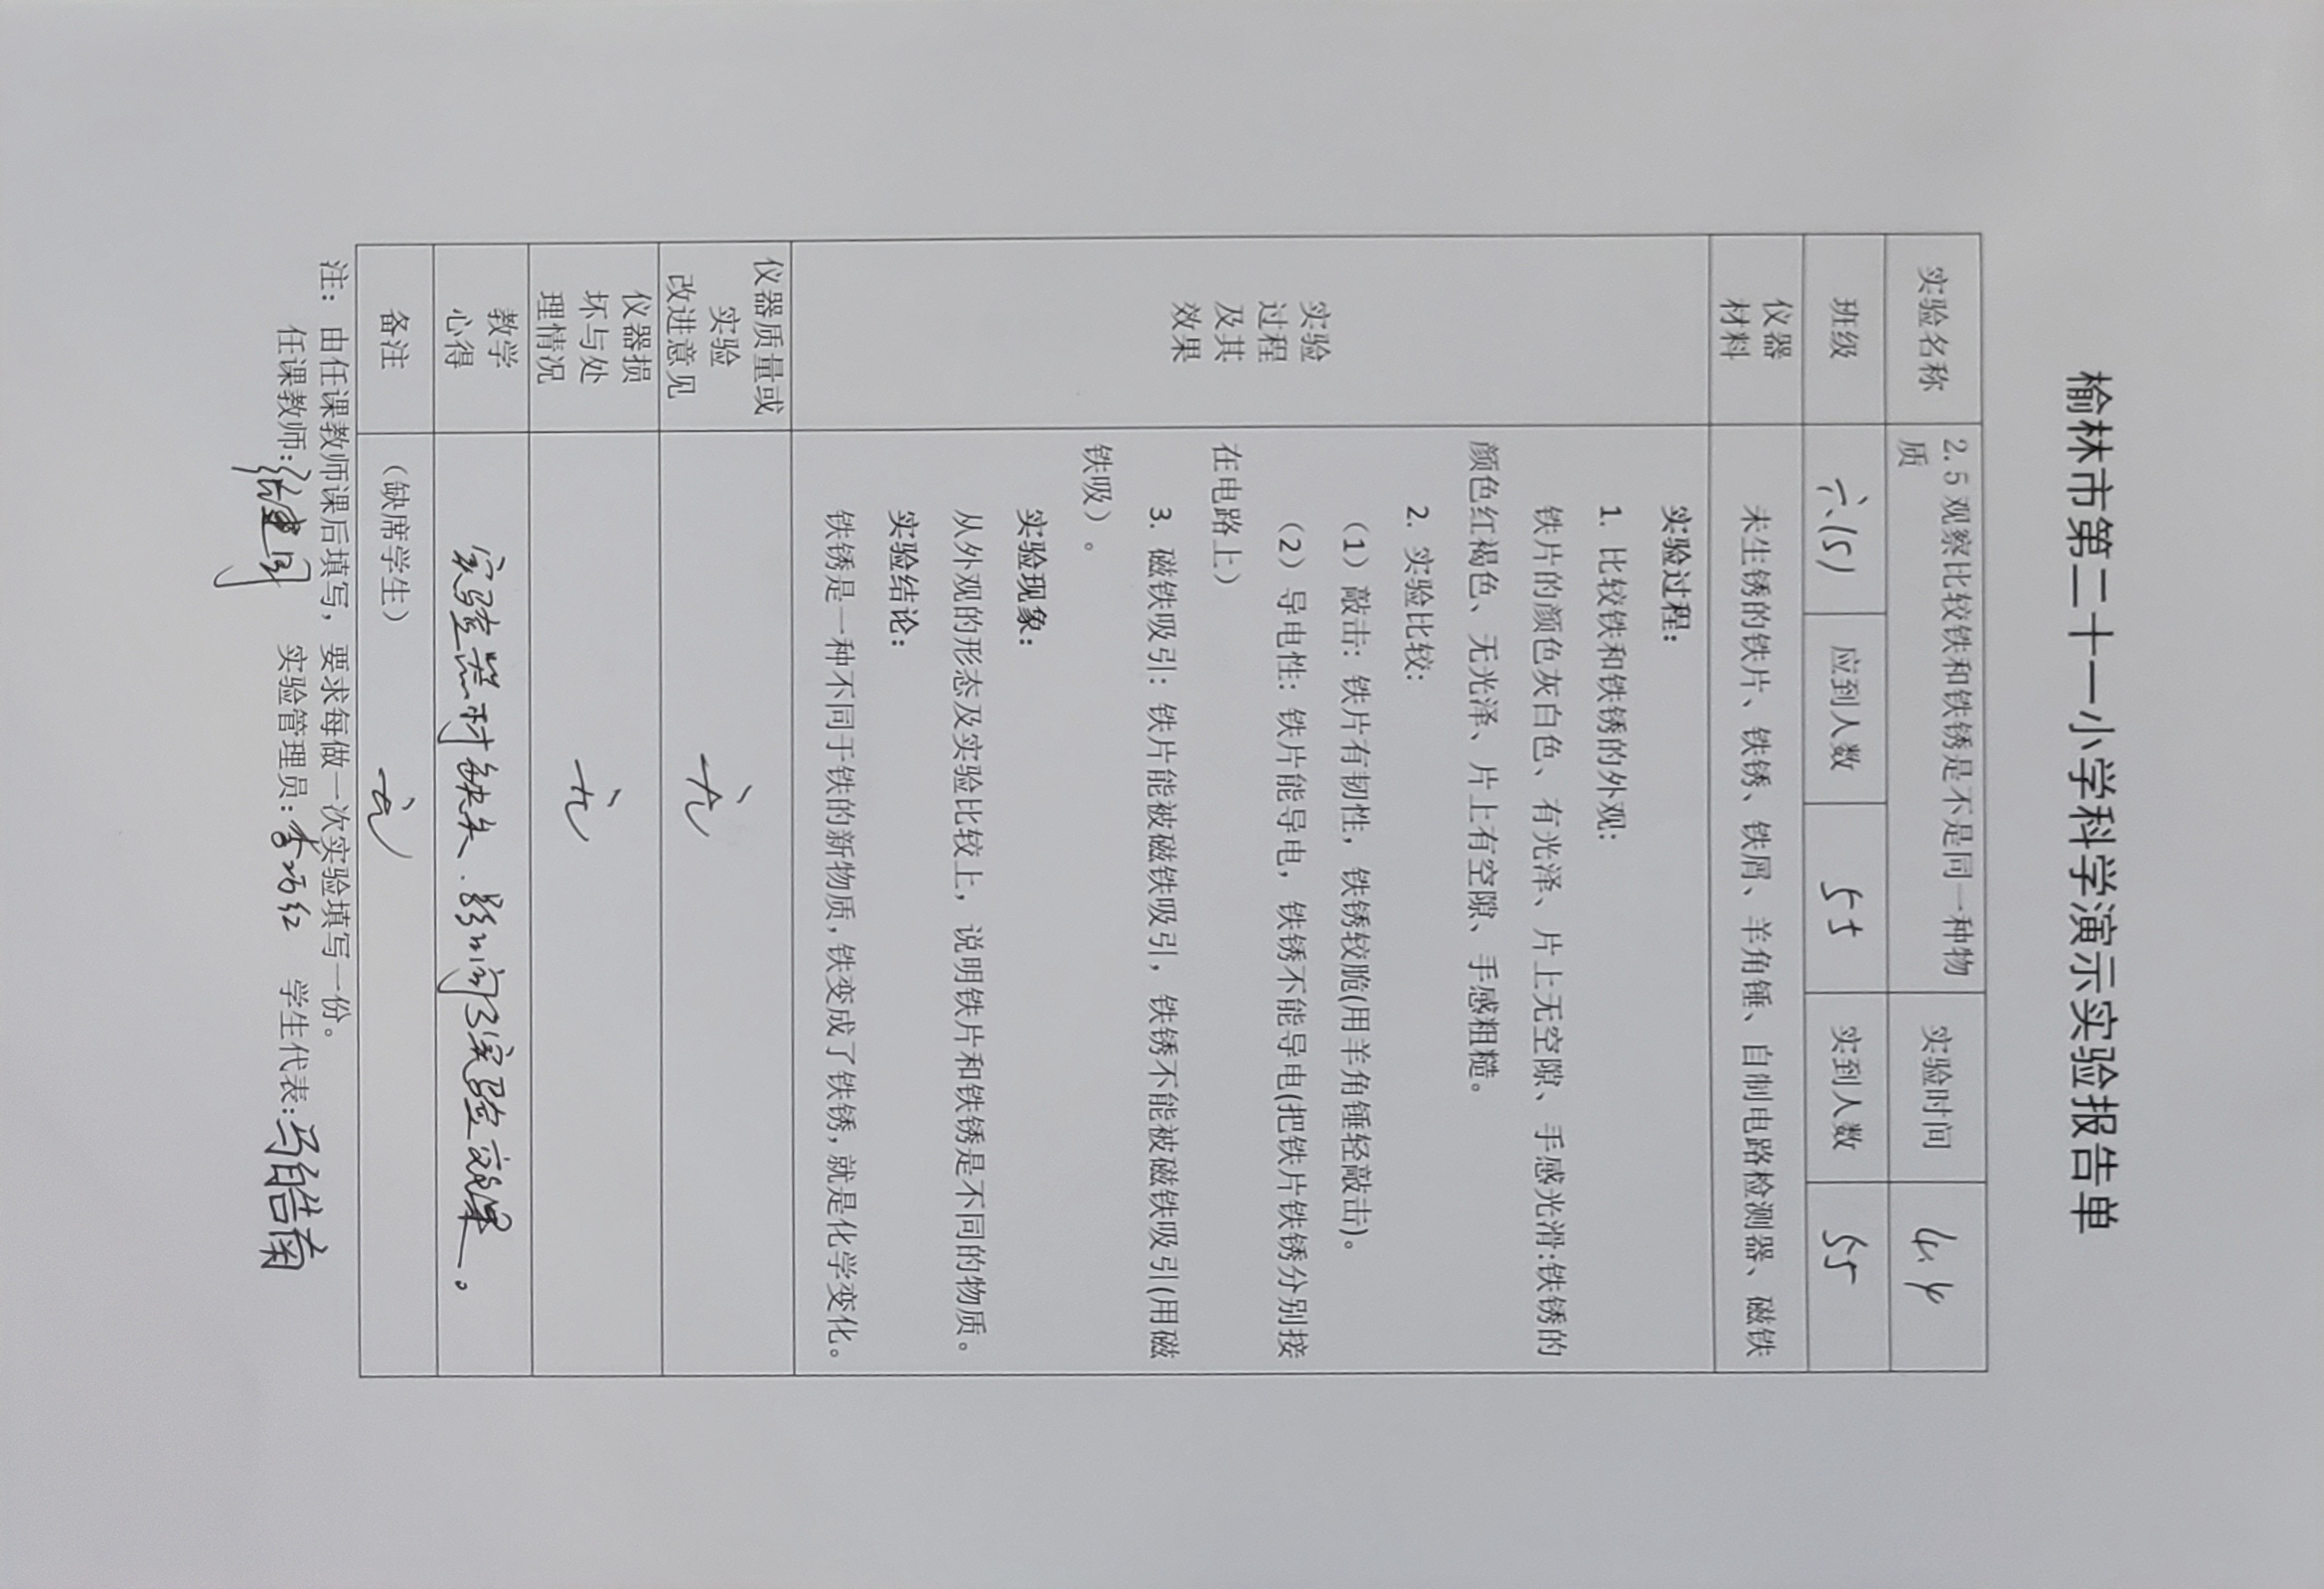 榆林市第二十一小学科学演示实验报告单
实验名称 2.5观察比较铁和铁锈是不是同一种物 实验时间 4.4
质
班级 六.(5) 应到人数 55 实到人数 55
仪器 未生锈的铁片、铁锈、铁屑、羊角锤、自制电路检测器、磁铁
材料
实验
过程
及其
效果
实验过程：
1. 比较铁和铁锈的外观：
铁片的颜色灰白色、有光泽、片上无空隙、手感光滑:铁锈的
颜色红褐色、无光泽、片上有空隙、手感粗糙。
2. 实验比较：
（1）敲击：铁片有韧性，铁锈较脆(用羊角锤轻敲击)。
（2）导电性：铁片能导电，铁锈不能导电(把铁片铁锈分别接
在电路上）
3. 磁铁吸引：铁片能被磁铁吸引，铁锈不能被磁铁吸引(用磁
铁吸）。
实验现象：
从外观的形态及实验比较上，说明铁片和铁锈是不同的物质。
实验结论：
铁锈是一种不同于铁的新物质,铁变成了铁锈,就是化学变化。
仪器质量或
实验
改进意见
无
仪器损
坏与处
理情况
无
教学
心得
实验器材缺失.影响了实验效果。
备注 （缺席学生） 无
注：由任课教师课后填写，要求每做一次实验填写一份。
任课教师: 实验管理员: 学生代表: